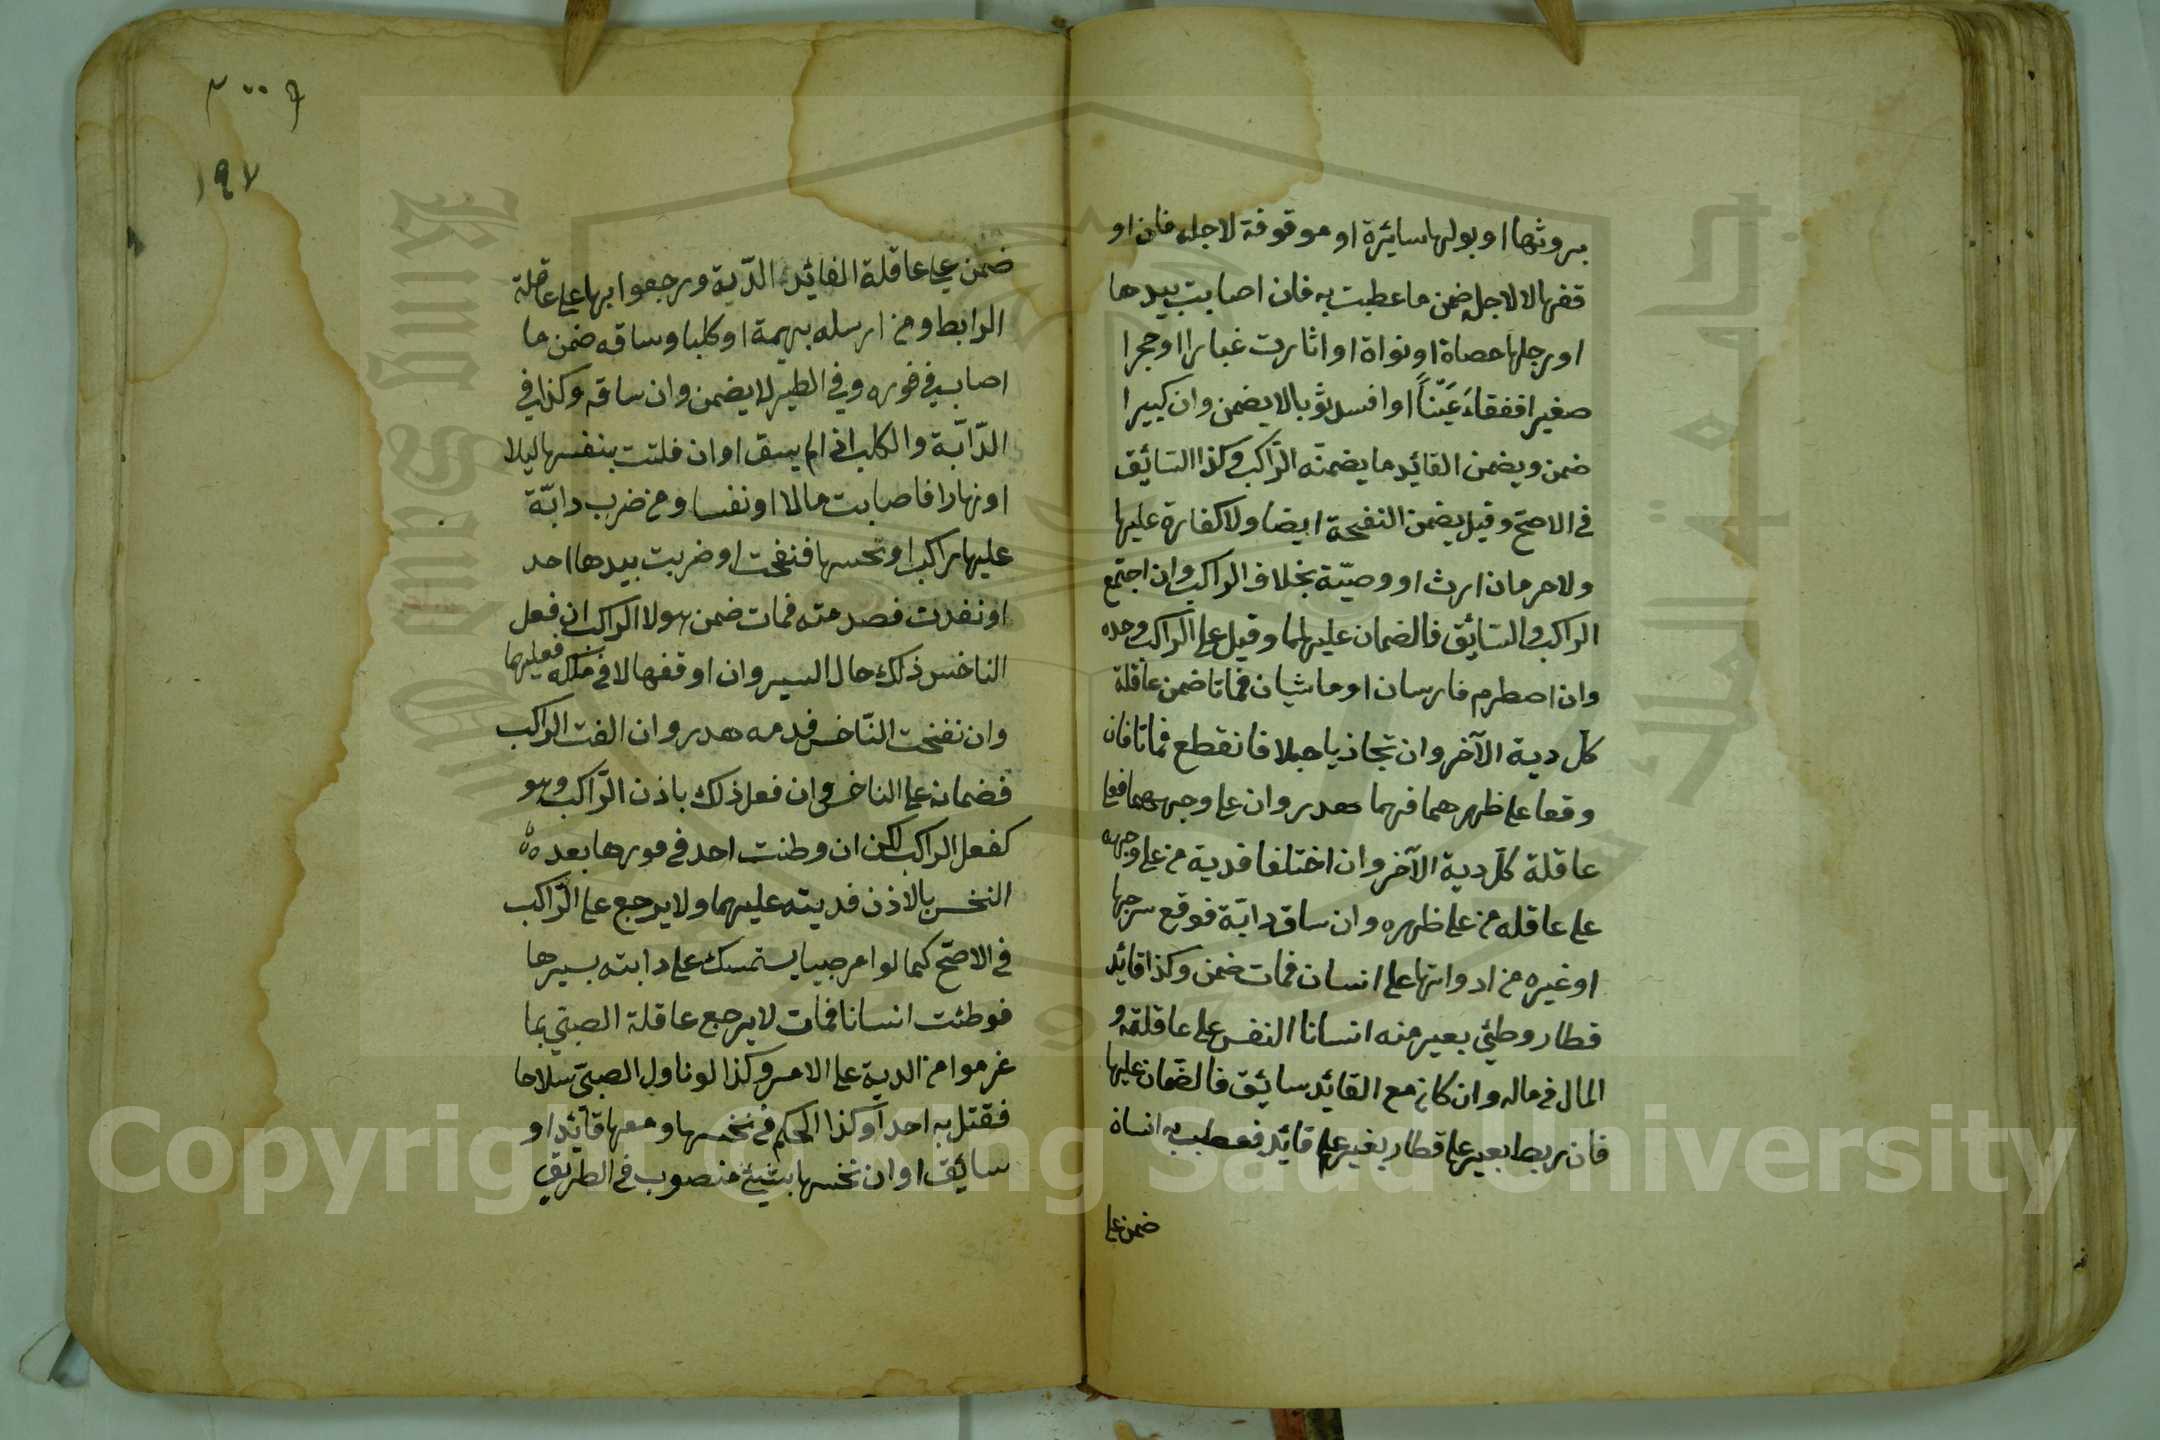 بروثها او بولها سايرة او موقوفة لاجله فان او
قفها لا لاجله ضمن ما عطبت به فان اصابت بيدها
او رجلها حصاة او نواة او اثارت غبارا او حجرا
صغيرا ففقاء عينا او افسد ثوبا لا يضمن وان كبيرا
ضمن ويضمن القائد ما يضمنه الراكب وكذا السائق
في الاصح وقيل يضمن النفحة ايضا ولا كفارة عليها
ولا حرمان ارث او وصية بخلاف الراكب وان اجتمع
الراكب والسائق فالضمان عليهما وقيل على الراكب وحده
وان اصطدم فارسان او ماشيان فماتا ضمن عاقلة
كل دية الآخر وان تجاذبا حبلا فانقطع فماتا فان
وقعا على ظهرهما فهما هدر وان على وجههما فعلى
عاقلة كل دية الآخر وان اختلفا فدية من على وجهه
على عاقله من على ظهره وان ساق دابة فوقع سرجها
او غيره من ادواتها على انسان فمات ضمن وكذا قائد
قطار وطئ بعير منه انسانا النفس على عاقلته و
المال في ماله وان كان مع القائد سائق فالضمان عليها
فان ربط بعير على قطار بغير علم قائد فعطب به انسان
ضمن على
٢٠٠٩
١٩٧
ضمن على عاقلة القائد الدية ورجعوا بها على عاقلة
الرابط ومن ارسله بهيمة او كلبا وساقه ضمن ما
اصاب في فوره وفي الطير لا يضمن وان ساقه وكذا في
الدابة والكلب اذا لم يسق او ان فلتت بنفسها ليلا
او نهارا فاصابت مالا او نفسا ومن ضرب دابة
عليها راكب او نخسها فنفحت او ضربت بيدها احد
او نفدت فصدمته فمات ضمن هو لا الراكب ان فعل
الناخس ذلك حال السير وان اوقفها لا في ملكه فعليهما
وان نفحت الناخس فدمه هدر وان القت الراكب
فضمانه على الناخس وان فعل ذلك باذن الراكب وهو
كفعل الراكب لكن ان وطئت احد في فورها بعد
النخس بالاذن فديته عليهما ولا يرجع على الراكب
في الاصح كما لو امر صبيا يستمسك على دابته بسيرها
فوطئت انسانا فمات لا يرجع عاقلة الصبي بما
غرموا من الدية على الامر وكذا لو ناول الصبي سلاحا
فقتل به احدا وكذا الحكم في نخسها ومعها قائد او
سائق او ان نخسها بشئ منصوب في الطريق
Copyright © King Saud University
King Saud University
جامعة الملك سعود